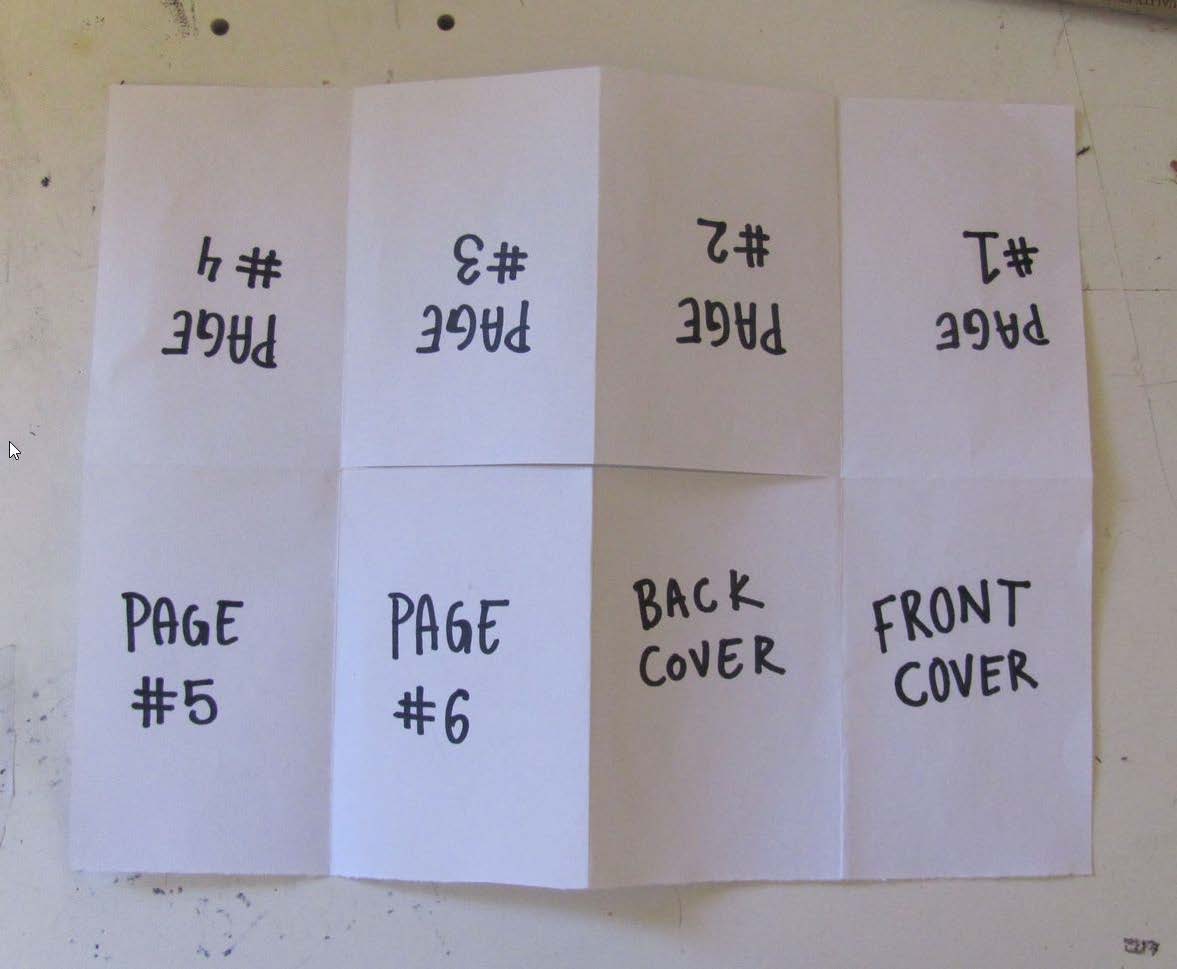 PAGE
#4
PAGE
#3
PAGE
#2
PAGE
#1
PAGE
#5
PAGE
#6
BACK
COVER
FRONT
COVER